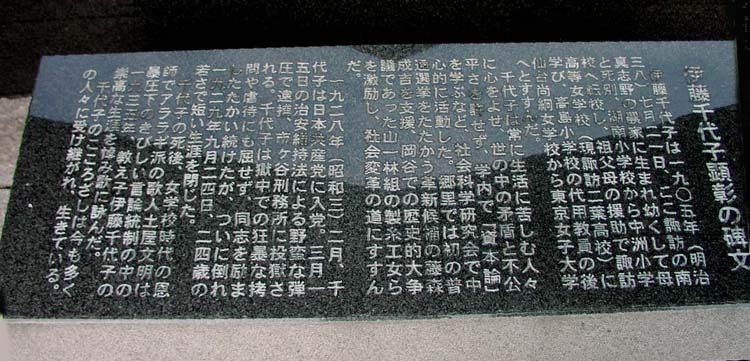 伊藤千代子顕彰の碑文
伊藤千代子は一九〇五年（明治
三八）七月二一日、ここ諏訪の南
真志野の農家に生まれ幼くして母
と死別、湖南小学校から中洲小学
校へ転校し、祖父母の援助で諏訪
高等女学校（現諏訪二葉高校）に
学び、高島小学校の代用教員の後
仙台尚絅女学校から東京女子大学
へとすすんだ。
千代子は常に生活に苦しむ人々
に心をよせ、世の中の矛盾と不公
平さを許せず、学内で「資本論」
を学ぶなど、社会科学研究会で中
心的に活動した。郷里では初の普
通選挙をたたかう革新候補の藤森
成吉を支援、岡谷での歴史的大争
議であった山一林組の製糸工女ら
を激励し、社会変革の道にすすん
だ。
一九二八年（昭和三）二月、千
代子は日本共産党に入党。三月一
五日の治安維持法による野蛮な弾
圧で逮捕、市ヶ谷刑務所に投獄さ
れる。千代子は獄中での狂暴な拷
問や虐待にも屈せず、同志を励ま
したたかい続けたが、ついに倒れ
一九二九年九月二四日、二四歳の
若さで短い生涯を閉じた。
千代子の死後、女学校時代の恩
師でアララギ派の歌人土屋文明は
暴圧下のきびしい言論統制の中の
一九三五年、教え子伊藤千代子の
崇高な生涯を悼み歌に詠んだ。
千代子のこころざしは今も多く
の人々に受け継がれ、生きている。